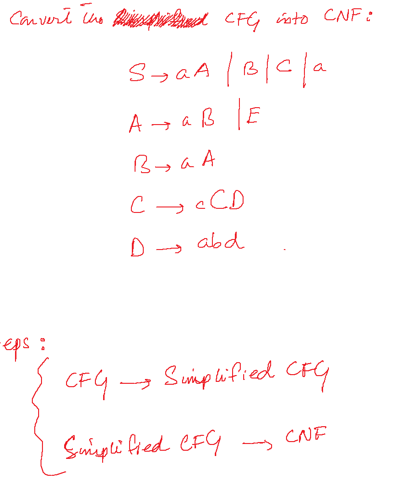 Convert the CFG into CNF:
S → aA | B | C | a
A → aB | E
B → aA
C → cCD
D → abd
eps:
CFG → Simplified CFG
Simplified CFG → CNF